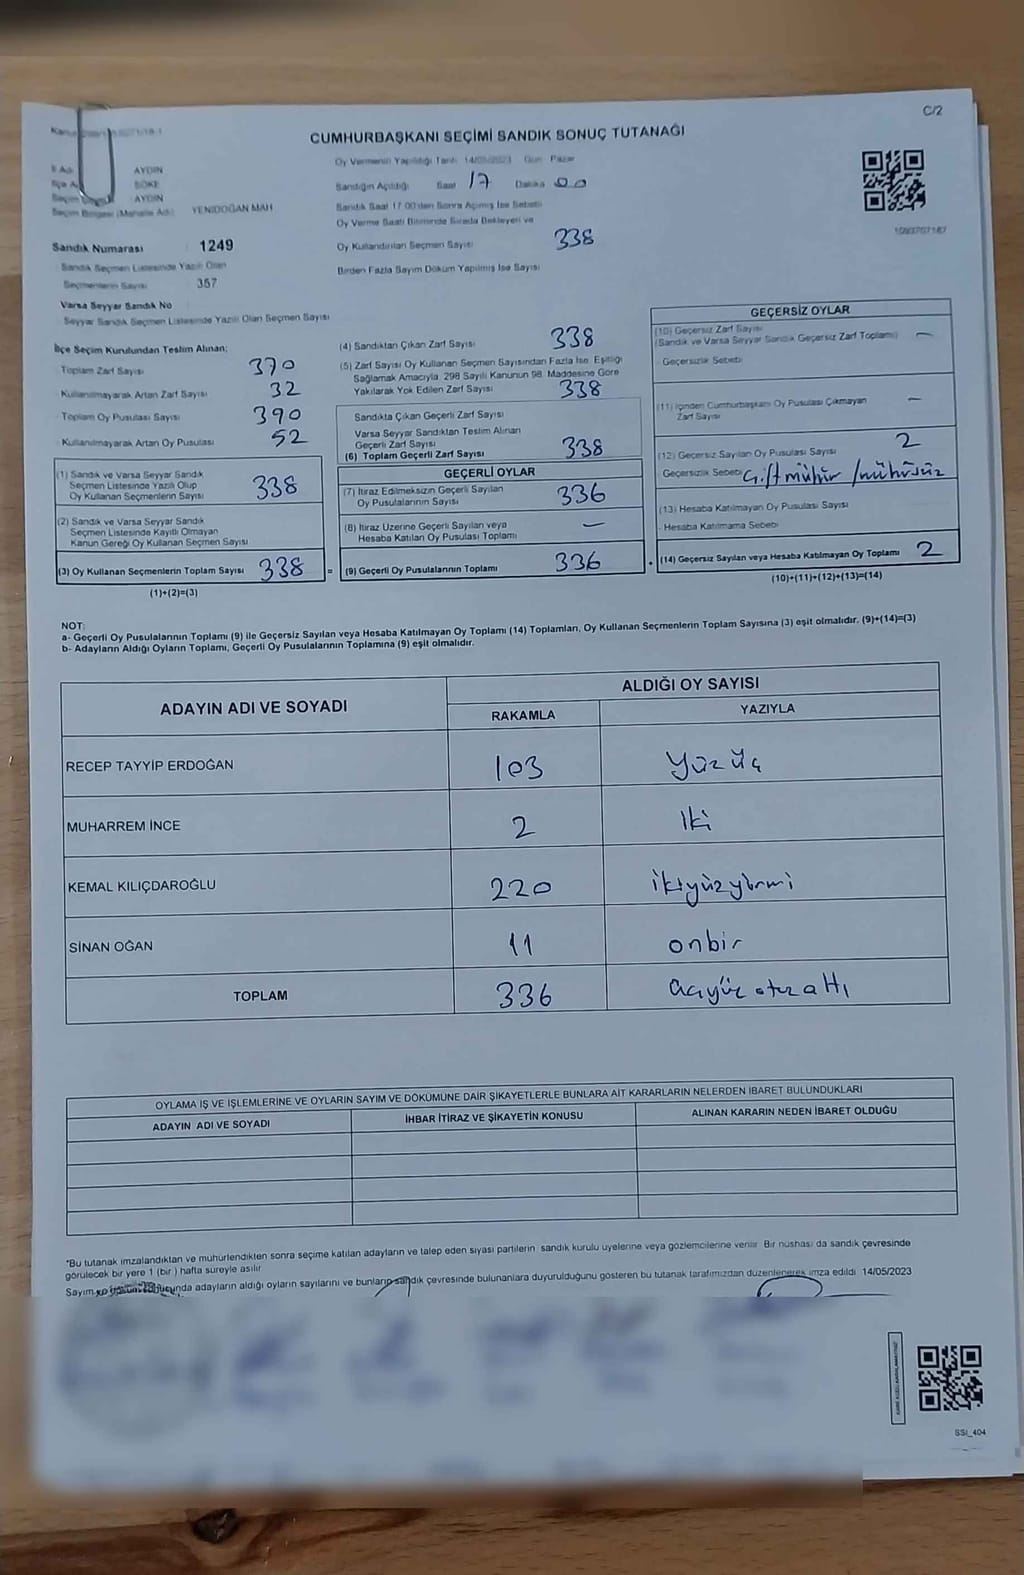 C/2
CUMHURBAŞKANI SEÇİMİ SANDIK SONUÇ TUTANAĞI
AYDIN
SÖKE
AYDIN
Seçim Bölgesi (Mahalle Adı) YENİDOĞAN MAH
Sandık Numarası 1249
Sandık Seçmen Listesinde Yazılı Olan
Seçmenlerin Sayısı 357
Varsa Seyyar Sandık No
Seyyar Sandık Seçmen Listesinde Yazılı Olan Seçmen Sayısı
Oy Vermenin Yapıldığı Tarih 14/05/2023 Gün Pazar
Sandığın Açıldığı Saat 17 Dakika 00
Sandık Saat 17.00'den Sonra Açılmış İse Sebebi
Oy Verme Saati Bitiminde Sırada Bekleyen ve
Oy Kullandırılan Seçmen Sayısı 338
Birden Fazla Sayım Döküm Yapılmış İse Sayısı
İlçe Seçim Kurulundan Teslim Alınan;
Toplam Zarf Sayısı 370
Kullanılmayarak Artan Zarf Sayısı 32
Toplam Oy Pusulası Sayısı 390
Kullanılmayarak Artan Oy Pusulası 52
(1) Sandık ve Varsa Seyyar Sandık
Seçmen Listesinde Yazılı Olup
Oy Kullanan Seçmenlerin Sayısı 338
(2) Sandık ve Varsa Seyyar Sandık
Seçmen Listesinde Kayıtlı Olmayan
Kanun Gereği Oy Kullanan Seçmen Sayısı
(3) Oy Kullanan Seçmenlerin Toplam Sayısı 338 =
(1)+(2)=(3)
(4) Sandıktan Çıkan Zarf Sayısı 338
(5) Zarf Sayısı Oy Kullanan Seçmen Sayısından Fazla İse, Eşitliği
Sağlamak Amacıyla, 298 Sayılı Kanunun 98. Maddesine Göre
Yakılarak Yok Edilen Zarf Sayısı 338
Sandıkta Çıkan Geçerli Zarf Sayısı
Varsa Seyyar Sandıktan Teslim Alınan
Geçerli Zarf Sayısı
(6) Toplam Geçerli Zarf Sayısı 338
GEÇERLİ OYLAR
(7) İtiraz Edilmeksizin Geçerli Sayılan
Oy Pusulalarının Sayısı 336
(8) İtiraz Üzerine Geçerli Sayılan veya
Hesaba Katılan Oy Pusulası Toplamı —
(9) Geçerli Oy Pusulalarının Toplamı 336 +
GEÇERSİZ OYLAR
(10) Geçersiz Zarf Sayısı
(Sandık ve Varsa Seyyar Sandık Geçersiz Zarf Toplamı) —
Geçersizlik Sebebi
(11) İçinden Cumhurbaşkanı Oy Pusulası Çıkmayan
Zarf Sayısı —
(12) Geçersiz Sayılan Oy Pusulası Sayısı 2
Geçersizlik Sebebi Çift mühür / mühürsüz
(13) Hesaba Katılmayan Oy Pusulası Sayısı
Hesaba Katılmama Sebebi
(14) Geçersiz Sayılan veya Hesaba Katılmayan Oy Toplamı 2
(10)+(11)+(12)+(13)=(14)
NOT:
a- Geçerli Oy Pusulalarının Toplamı (9) ile Geçersiz Sayılan veya Hesaba Katılmayan Oy Toplamı (14) Toplamları, Oy Kullanan Seçmenlerin Toplam Sayısına (3) eşit olmalıdır. (9)+(14)=(3)
b- Adayların Aldığı Oyların Toplamı, Geçerli Oy Pusulalarının Toplamına (9) eşit olmalıdır.
ADAYIN ADI VE SOYADI
ALDIĞI OY SAYISI
RAKAMLA YAZIYLA
RECEP TAYYİP ERDOĞAN 103 Yüz üç
MUHARREM İNCE 2 İki
KEMAL KILIÇDAROĞLU 220 ikiyüzyirmi
SİNAN OĞAN 11 onbir
TOPLAM 336 üçyüz otuz altı
OYLAMA İŞ VE İŞLEMLERİNE VE OYLARIN SAYIM VE DÖKÜMÜNE DAİR ŞİKAYETLERLE BUNLARA AİT KARARLARIN NELERDEN İBARET BULUNDUKLARI
ADAYIN ADI VE SOYADI İHBAR İTİRAZ VE ŞİKAYETİN KONUSU ALINAN KARARIN NEDEN İBARET OLDUĞU
*Bu tutanak imzalandıktan ve mühürlendikten sonra seçime katılan adayların ve talep eden siyasi partilerin sandık kurulu üyelerine veya gözlemcilerine verilir. Bir nüshası da sandık çevresinde
görülecek bir yere 1 (bir) hafta süreyle asılır
Sayım adayların aldığı oyların sayılarını ve bunların sandık çevresinde bulunanlara duyurulduğunu gösteren bu tutanak tarafımızdan düzenlenerek imza edildi 14/05/2023
SSI_404